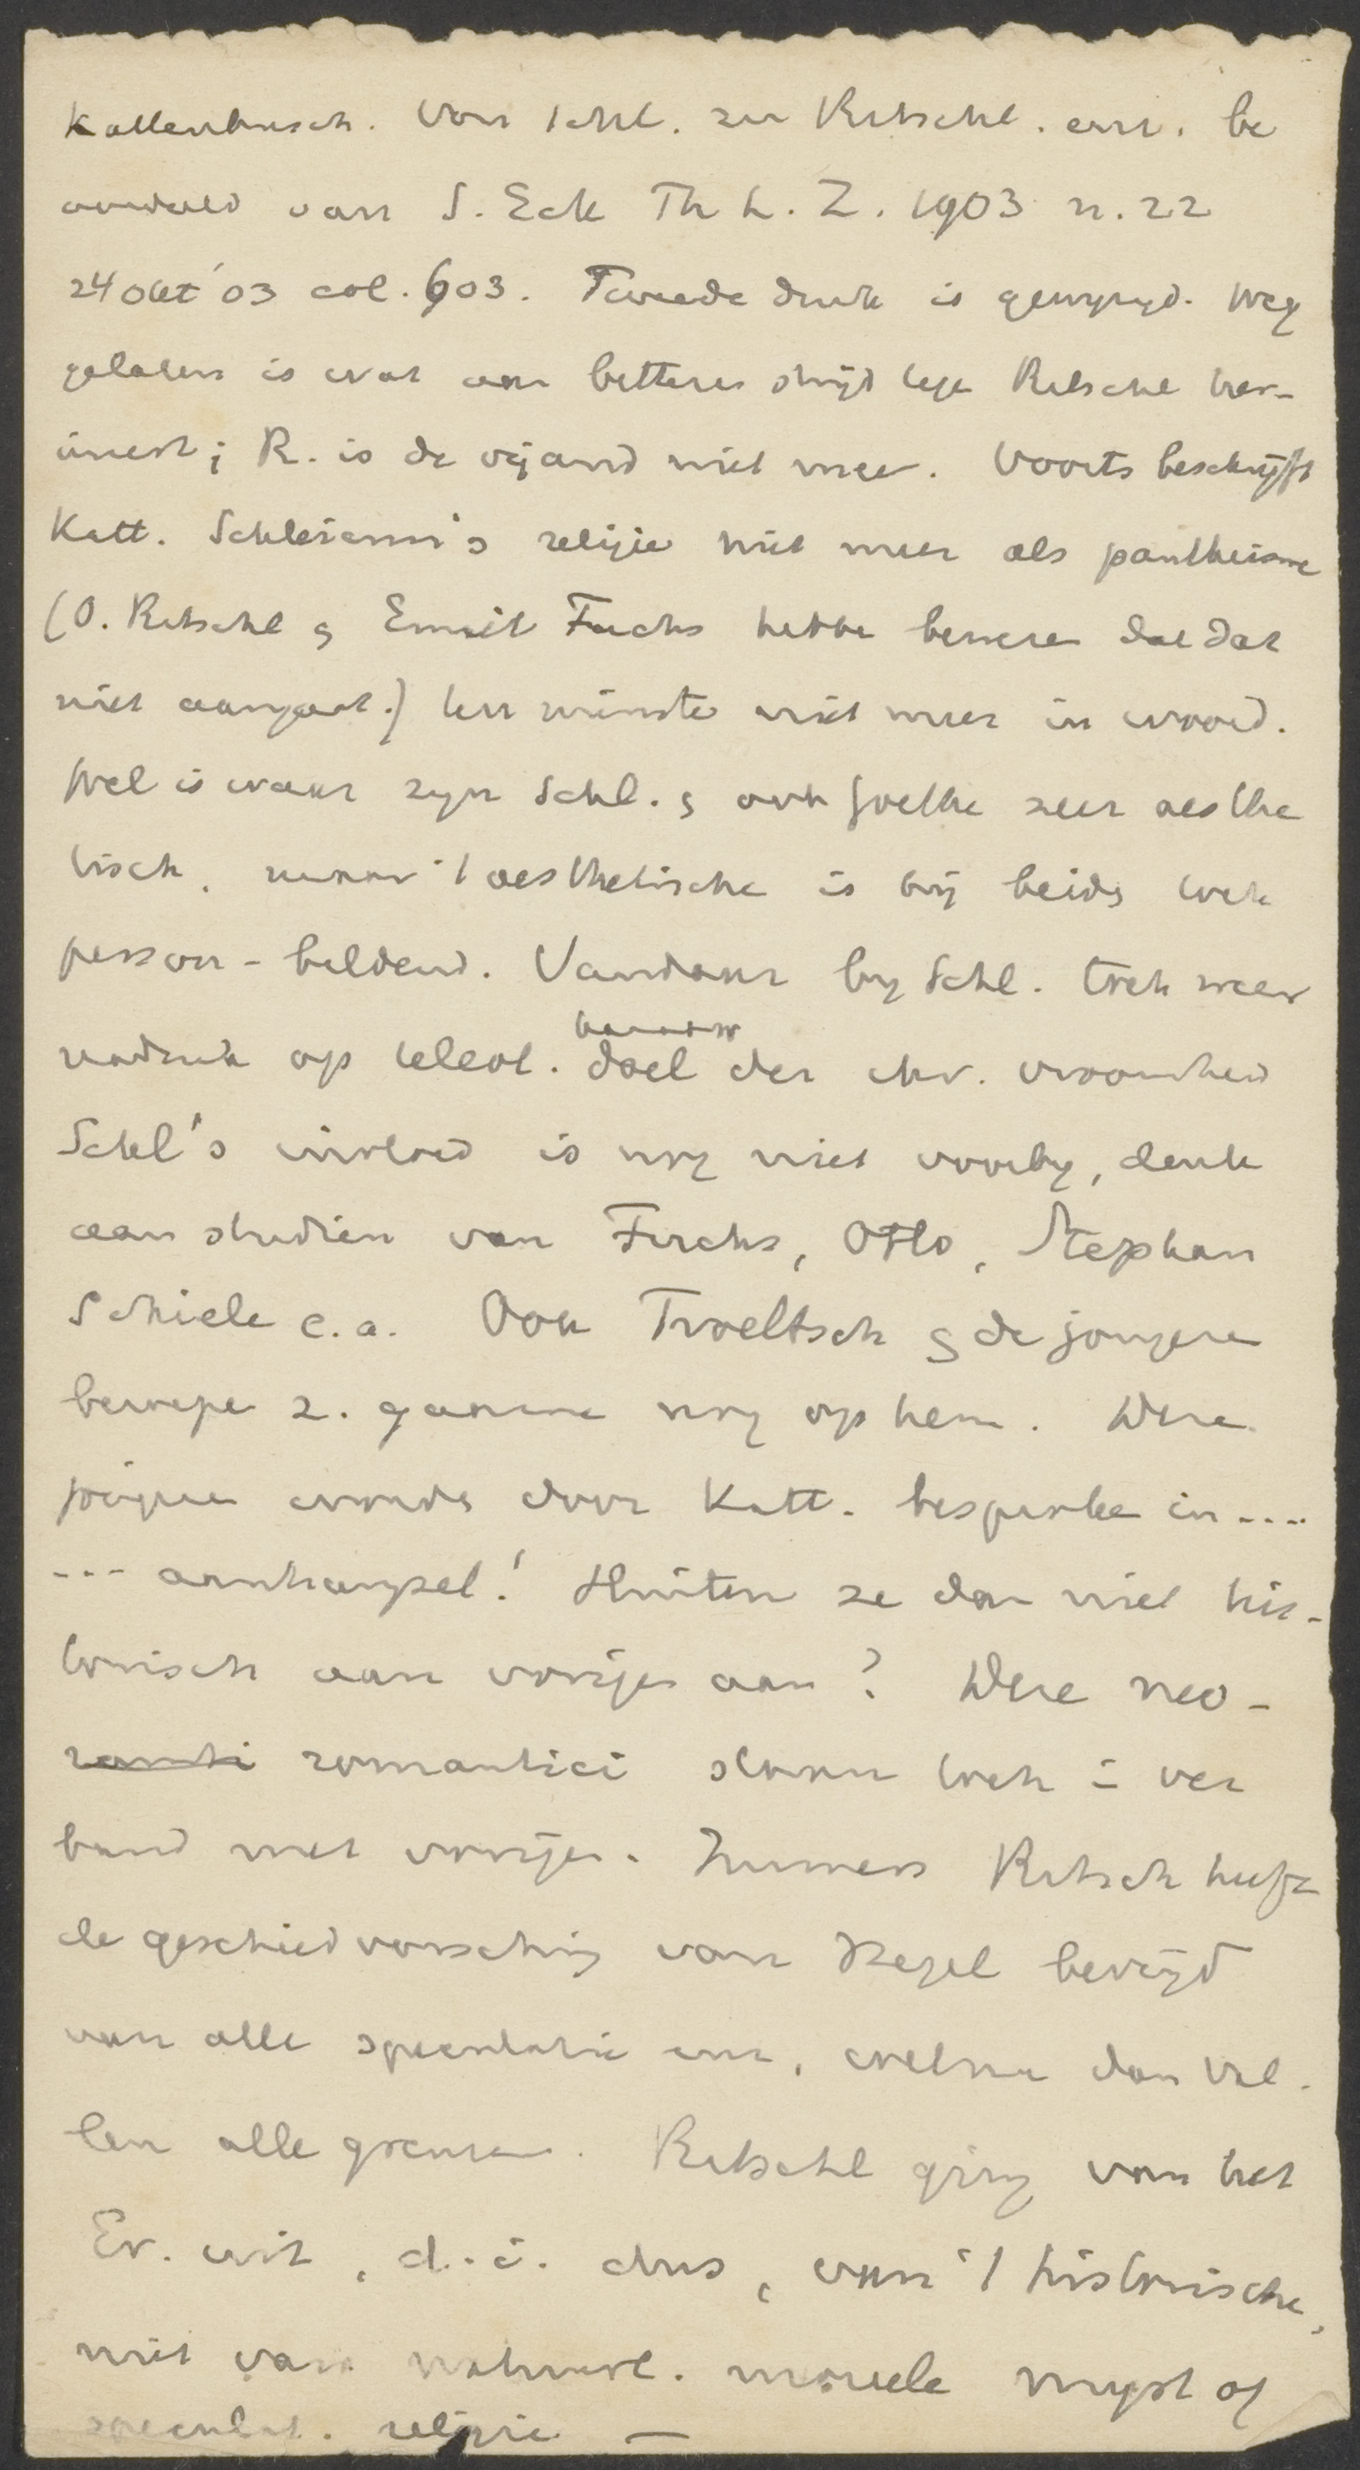 Kattenbusch. Von Schl. zu Ritschl. enz. be
oordeeld van S. Eck Th L. Z. 1903 n. 22
24 Okt '03 col. 603. Tweede druk is gewijzigd. Weg
gelaten is wat aan bitteren strijd tege Ritschl her-
innert; R. is de vijand niet meer. Voorts beschrijft
Katt. Schleierm's religie niet meer als pantheisme
(O. Ritschl en Emil Fuchs hebbe beweze dat dat
niet aangaat.) ten minste niet meer in woord.
Wel is waar zijn Schl. en ook Goethe zeer aesthe
tisch, maar 't aesthetische is bij beide toch
persoon-beldend. Vandaar bij Schl. toch weer
nadruk op teleol. doel der chr. vroomheid
Schl's invloed is nog niet voorbij, denk
aan studien van Fuchs, Otto, Stephan
Schiele e.a. Ook Troeltsch en de jongere
beroepe z. gaarne nog op hem. Deze
jongere worde door Katt. besproke in ....
--- aanhangsel! Sluiten ze dan niet his-
torisch aan vorige aan? Deze neo-
romanti romantici staan toch i ver
band met vorige. Immers Ritsch heeft
de geschiedvorsching van Hegel bevrijd
van alle speculatie enz, welnu dan val-
len alle grenzen. Ritschl ging van het
Ev. uit, d.i. dus, van 't historische,
niet van natuurl. moreele myst of
speculat. religie —